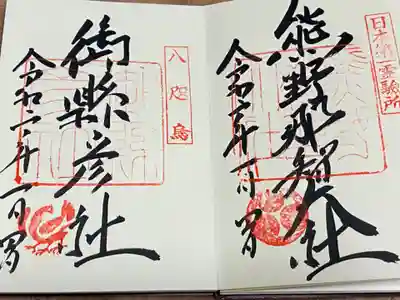 日本第一霊験所
熊野那智大社
令和二年一月
八咫烏
御縣彦社
令和二年一月